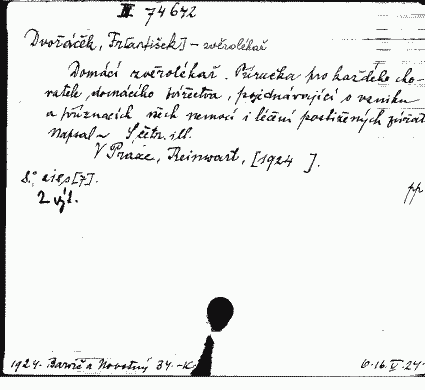 II 74642
Dvořáček, Fr[antišek] – zvěrolékař
Domácí zvěrolékař. Příručka pro každého cho-
vatele domácího zvířectva, pojednávající o vzniku
a příznacích všech nemocí i léčení postižených zvířat
Napsal ~ S četn. ill.
V Praze, Reinwart, [1924 ].
8° s [7].
2 výt.
pp
1924. Barvič a Novotný 34. –K
16. V. 24.